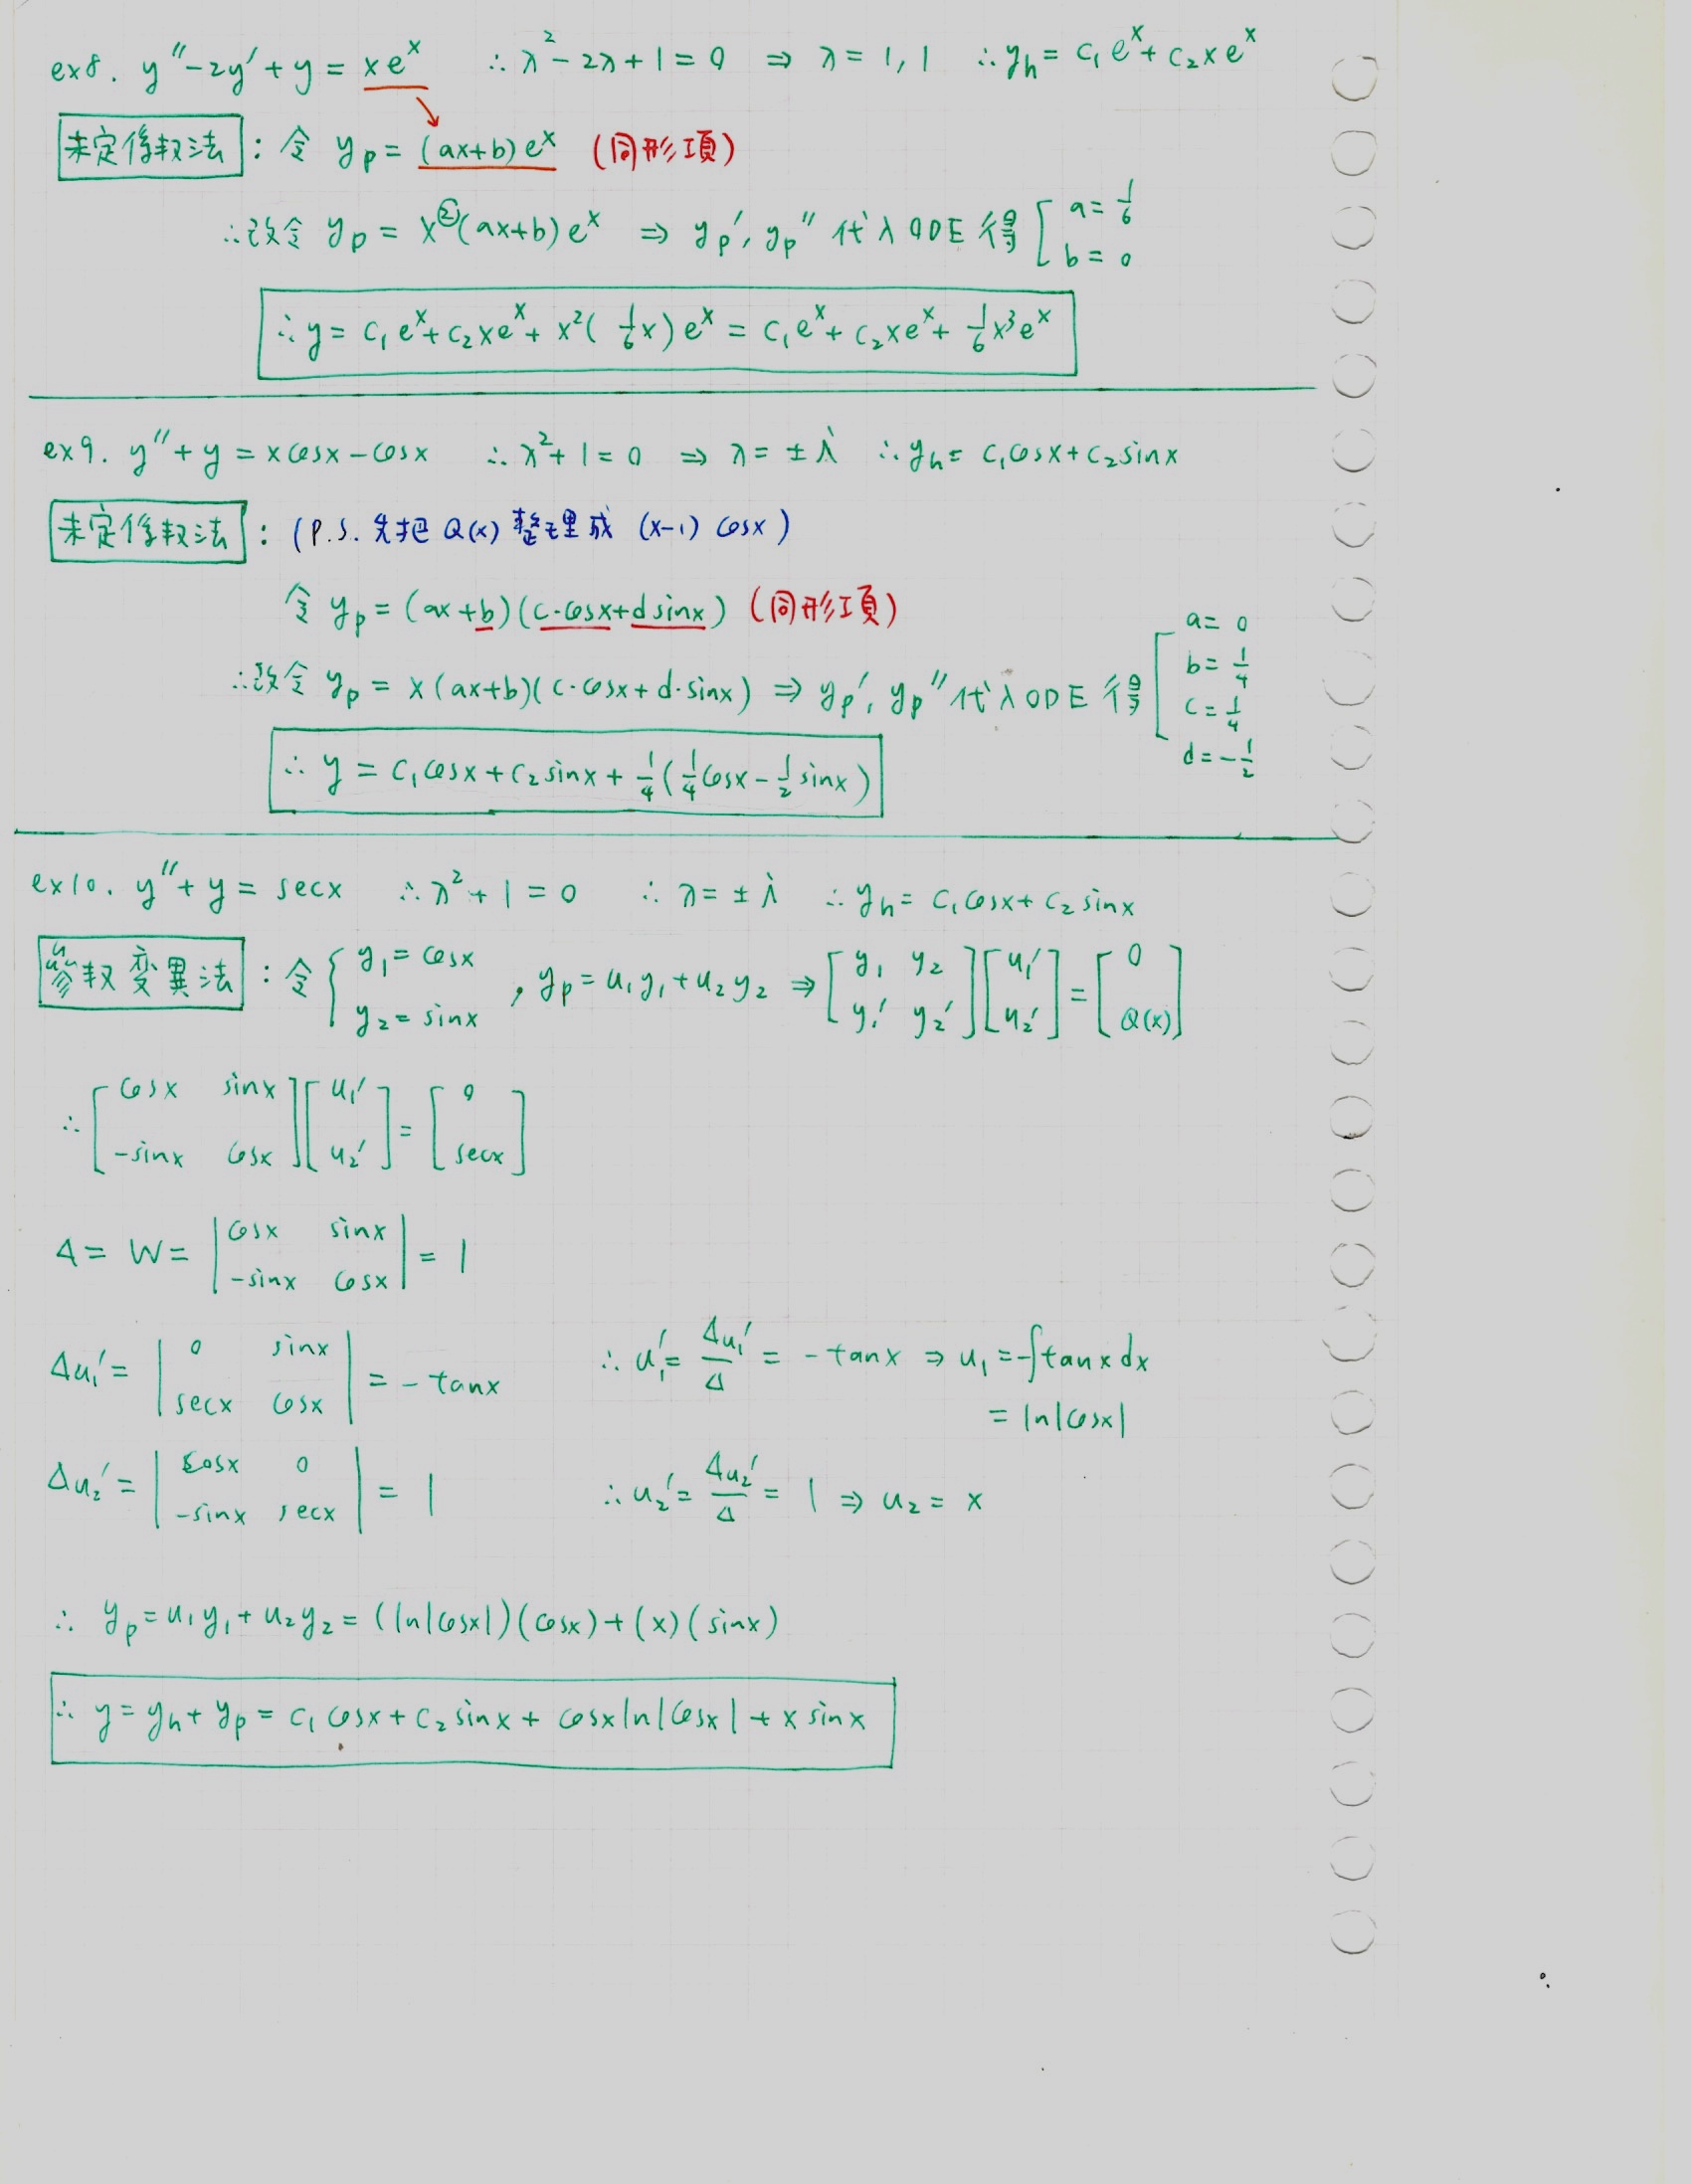 ex8. y''-2y'+y = xe^x ∴ λ²-2λ+1=0 ⇒ λ=1,1 ∴ y_h = c₁e^x + c₂xe^x
未定係數法 : 令 y_p = (ax+b)e^x (同形項)
∴改令 y_p = x^②(ax+b)e^x ⇒ y_p', y_p'' 代入ODE 得 [ a=1/6 b=0
∴ y = c₁e^x + c₂xe^x + x²(1/6 x)e^x = c₁e^x + c₂xe^x + 1/6 x³e^x
ex9. y''+y = xcosx-cosx ∴ λ²+1=0 ⇒ λ=±i ∴ y_h = c₁cosx+c₂sinx
未定係數法 : (P.S. 先把 Q(x) 整理成 (x-1) cosx)
令 y_p = (ax+b)(c·cosx+d sinx) (同形項)
∴改令 y_p = x(ax+b)(c·cosx+d·sinx) ⇒ y_p', y_p'' 代入ODE 得 [ a=0 b=1/4 c=1/4 d=-1/2
∴ y = c₁cosx+c₂sinx + 1/4(1/4 cosx - 1/2 sinx)
ex10. y''+y = secx ∴ λ²+1=0 ∴ λ=±i ∴ y_h = c₁cosx+c₂sinx
參數變異法 : 令 { y₁=cosx y₂=sinx , y_p = u₁y₁+u₂y₂ ⇒ [y₁ y₂; y₁' y₂'][u₁'; u₂'] = [0; Q(x)]
∴ [cosx sinx; -sinx cosx][u₁'; u₂'] = [0; secx]
Δ = W = |cosx sinx; -sinx cosx| = 1
Δu₁' = |0 sinx; secx cosx| = -tanx ∴ u₁' = Δu₁'/Δ = -tanx ⇒ u₁ = -∫tanxdx
= ln|cosx|
Δu₂' = |cosx 0; -sinx secx| = 1 ∴ u₂' = Δu₂'/Δ = 1 ⇒ u₂ = x
∴ y_p = u₁y₁+u₂y₂ = (ln|cosx|)(cosx)+(x)(sinx)
∴ y = y_h+y_p = c₁cosx+c₂sinx + cosxln|cosx| + x sinx